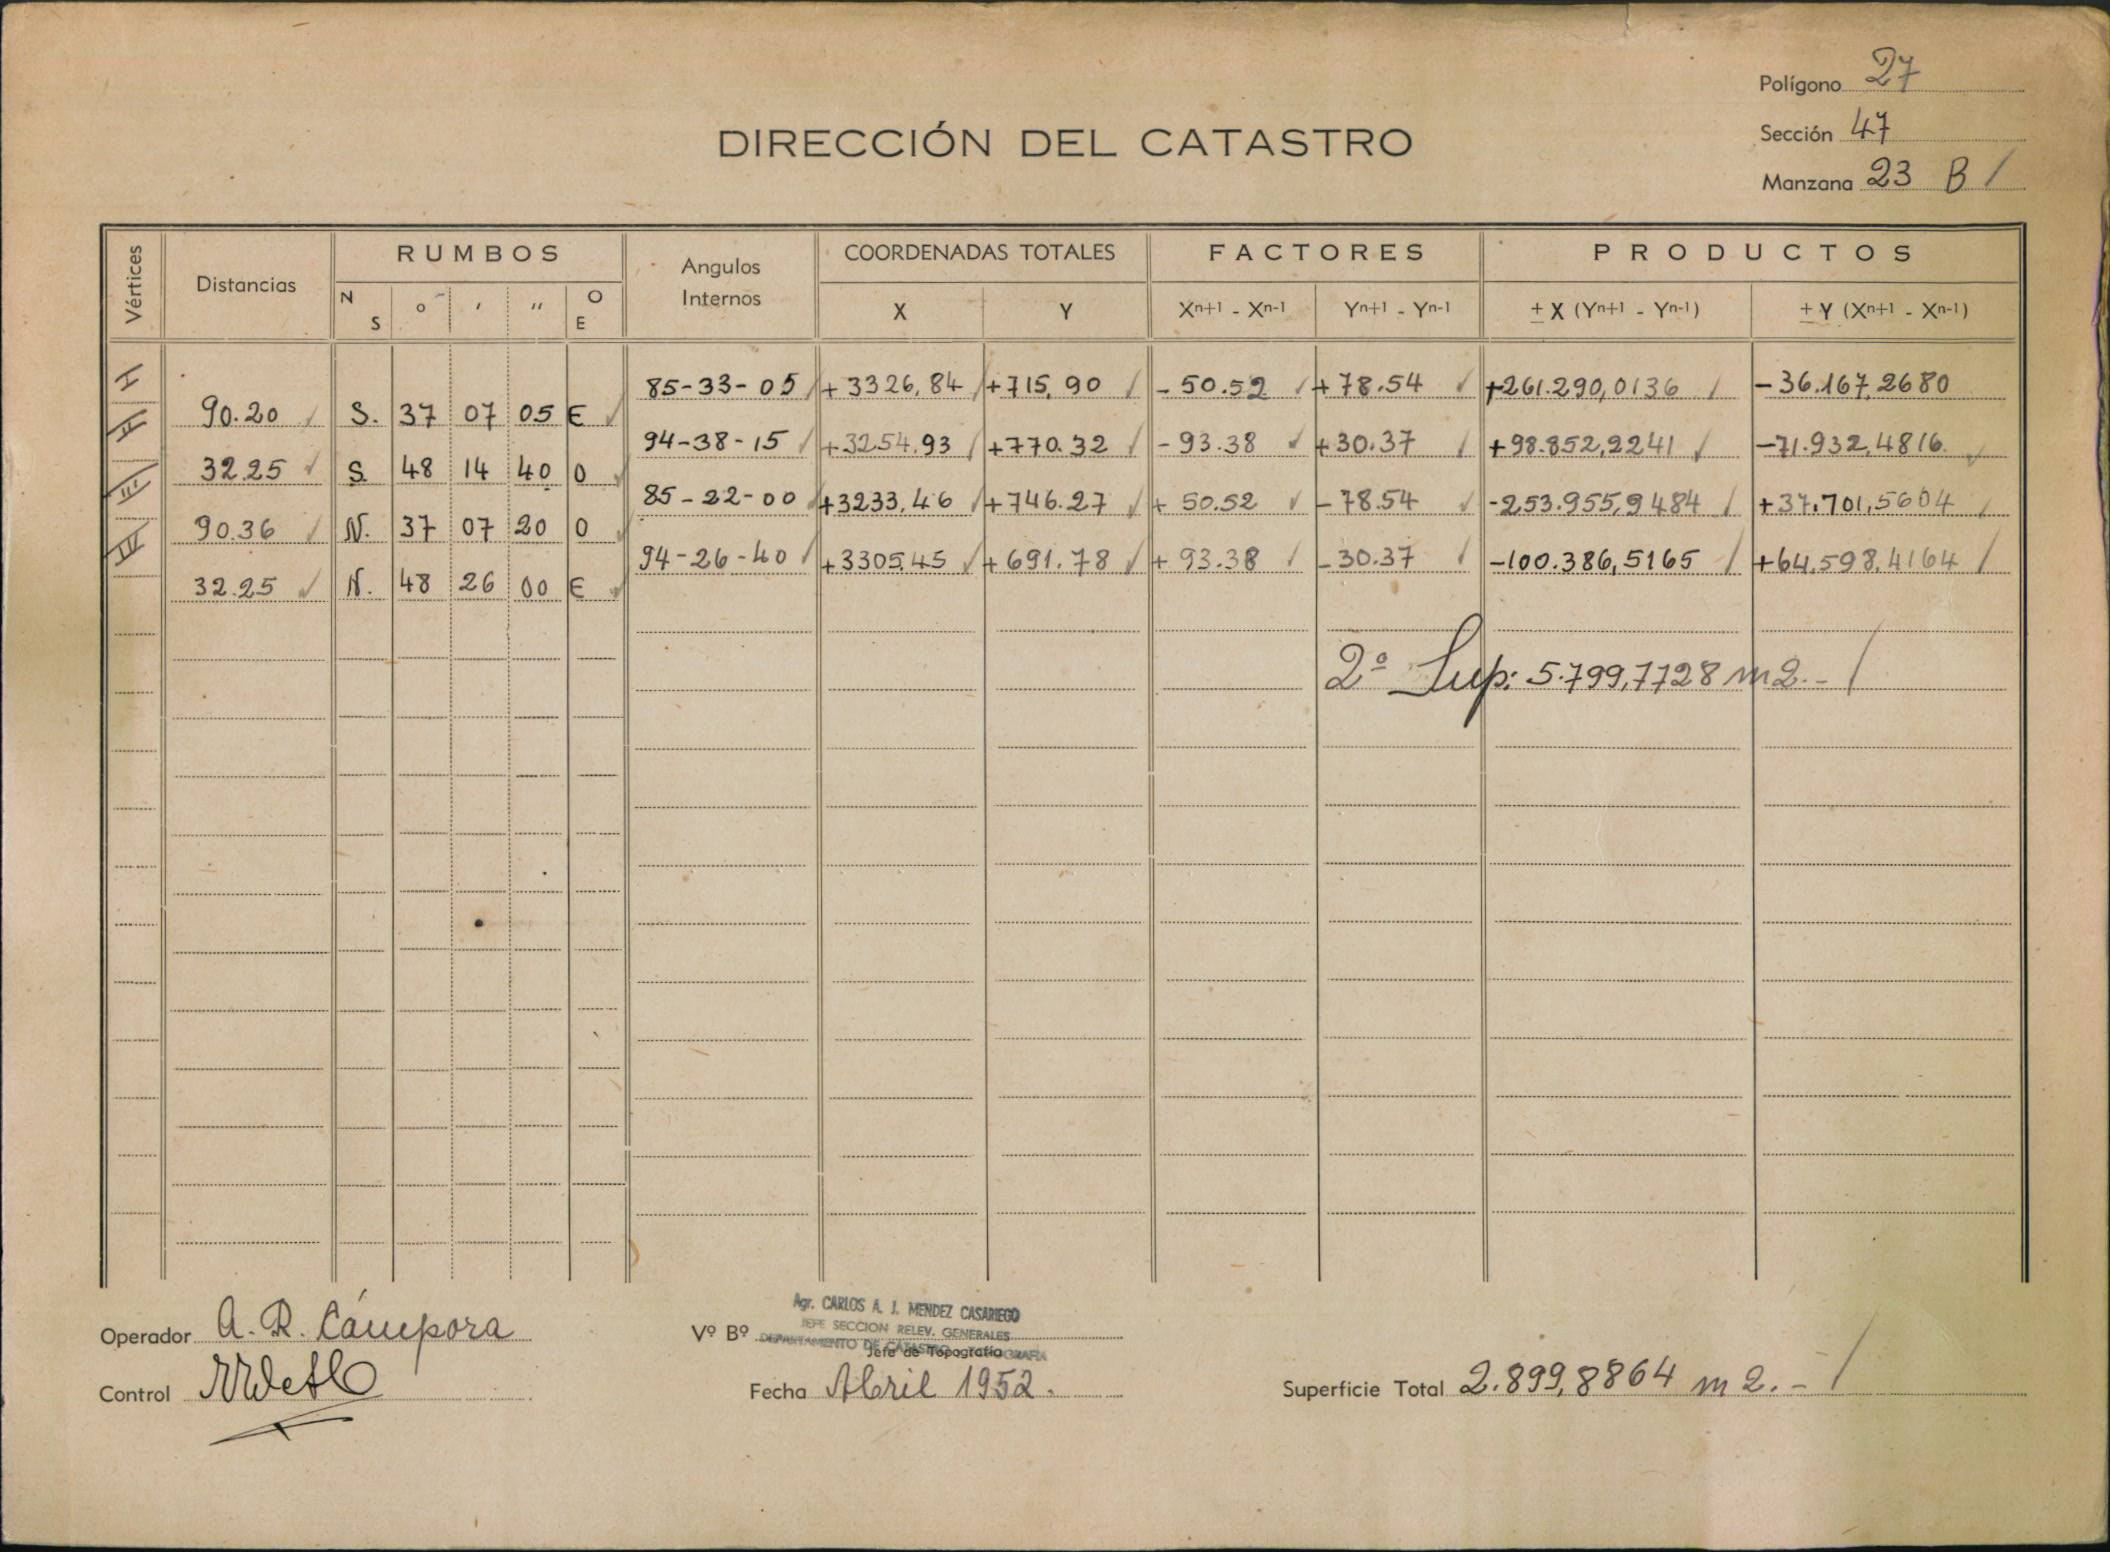 Polígono 27
DIRECCIÓN DEL CATASTRO
Sección 47
Manzana 23 B /
Vértices Distancias RUMBOS Angulos Internos COORDENADAS TOTALES FACTORES PRODUCTOS
N S ° ' '' O E X Y Xn+1 - Xn-1 Yn+1 - Yn-1 ± X (Yn+1 - Yn-1) ± Y (Xn+1 - Xn-1)
I 85-33-05 +3326,84 +715,90 -50.52 +78.54 +261.290,0136 -36.167,2680
90.20 S. 37 07 05 E
II 94-38-15 +3254,93 +770.32 -93.38 +30.37 +98.852,2241 -71.932,4816
32.25 S. 48 14 40 O
III 85-22-00 +3233,46 +746.27 +50.52 -78.54 -253.955,9484 +37.701,5604
90.36 N. 37 07 20 O
IV 94-26-40 +3305.45 +691.78 +93.38 -30.37 -100.386,5165 +64.598,4164
32.25 N. 48 26 00 E
2º Sup: 5.799,7728 m2.- /
Operador A. R. Cámpora
Vº Bº Agr. CARLOS A. J. MENDEZ CASARIEGO
JEFE SECCION RELEV. GENERALES
DEPARTAMENTO DE CATASTRO
Jefe de Topografía
Control
Fecha Abril 1952.
Superficie Total 2.899,8864 m2.- /